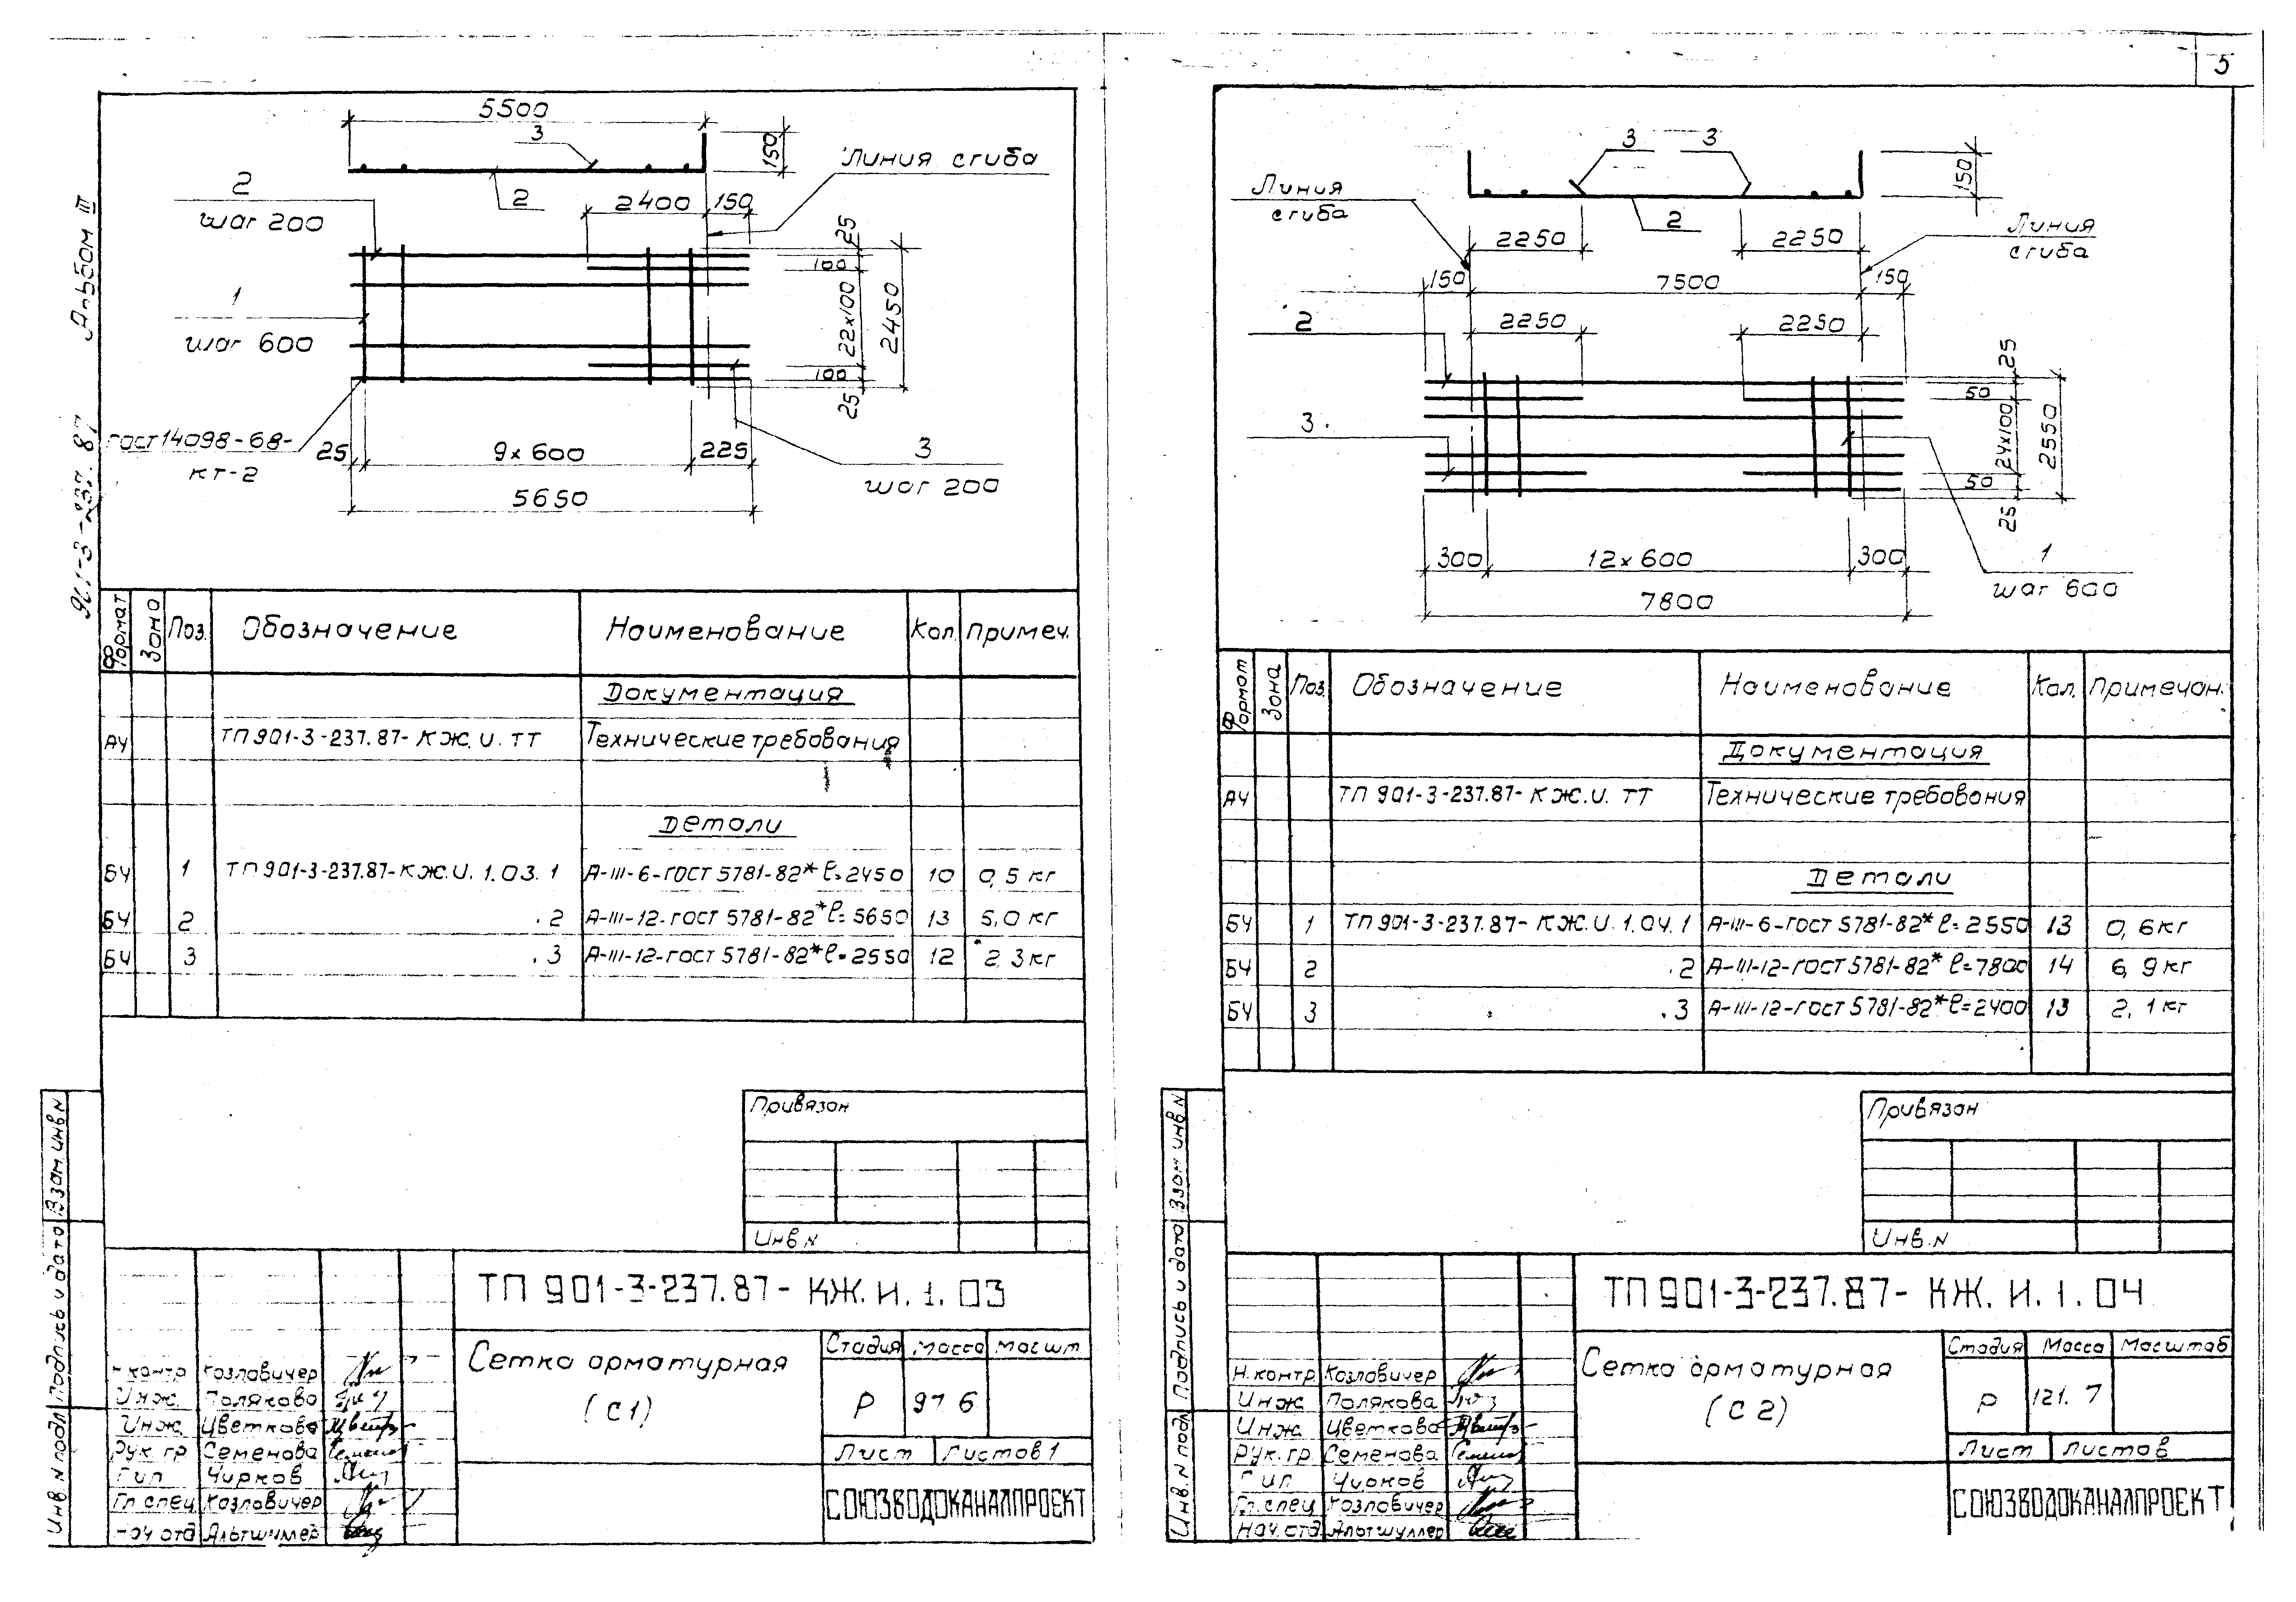 5
Альбом III
901-3-237.87
5500
3
150
Линия сгиба
2
шаг 200
2
2400
150
25
100
1
шаг 600
22х100
2450
100
25
ГОСТ 14098-68-
КТ-2
25
9х600
225
3
шаг 200
5650
Формат
Зона
Поз.
Обозначение
Наименование
Кол.
Примеч.
Документация
А4
ТП 901-3-237.87-КЖ.И.ТТ
Технические требования
Детали
БЧ 1 ТП 901-3-237.87-КЖ.И.1.03.1 А-III-6-ГОСТ 5781-82* ℓ=2450 10 0,5 кг
БЧ 2 .2 А-III-12-ГОСТ 5781-82* ℓ=5650 13 5,0 кг
БЧ 3 .3 А-III-12-ГОСТ 5781-82* ℓ=2550 12 2,3 кг
Привязан
Инв.N
Инв.N подл Подпись и дата Взам.инв.N
ТП 901-3-237.87-КЖ.И.1.03
Сетка арматурная
(С1)
Стадия Масса Масшт.
Р 97 6
Лист Листов 1
СОЮЗВОДОКАНАЛПРОЕКТ
Н.контр Козловичер
Инж. Полякова
Инж. Цветкова
Рук.гр Семенова
Гип Чирков
Гл.спец Козловичер
Нач.отд Альтшуллер
3 3
Линия
сгиба
150
2
Линия
сгиба
2250
2250
150
7500
150
2
2250
2250
25
50
3.
24х100
2550
50
25
300
12х600
300
1
шаг 600
7800
Формат
Зона
Поз.
Обозначение
Наименование
Кол.
Примечан.
Документация
А4
ТП 901-3-237.87-КЖ.И.ТТ
Технические требования
Детали
БЧ 1 ТП 901-3-237.87-КЖ.И.1.04.1 А-III-6-ГОСТ 5781-82* ℓ=2550 13 0,6 кг
БЧ 2 .2 А-III-12-ГОСТ 5781-82* ℓ=7800 14 6,9 кг
БЧ 3 .3 А-III-12-ГОСТ 5781-82* ℓ=2400 13 2,1 кг
Привязан
Инв.N
Инв.N подл Подпись и дата Взам инв.N
ТП 901-3-237.87-КЖ.И.1.04
Сетка арматурная
(С2)
Стадия Масса Масштаб
Р 121.7
Лист Листов
СОЮЗВОДОКАНАЛПРОЕКТ
Н.контр Козловичер
Инж. Полякова
Инж. Цветкова
Рук.гр. Семенова
Гип Чирков
Гл.спец Козловичер
Нач.отд Альтшуллер